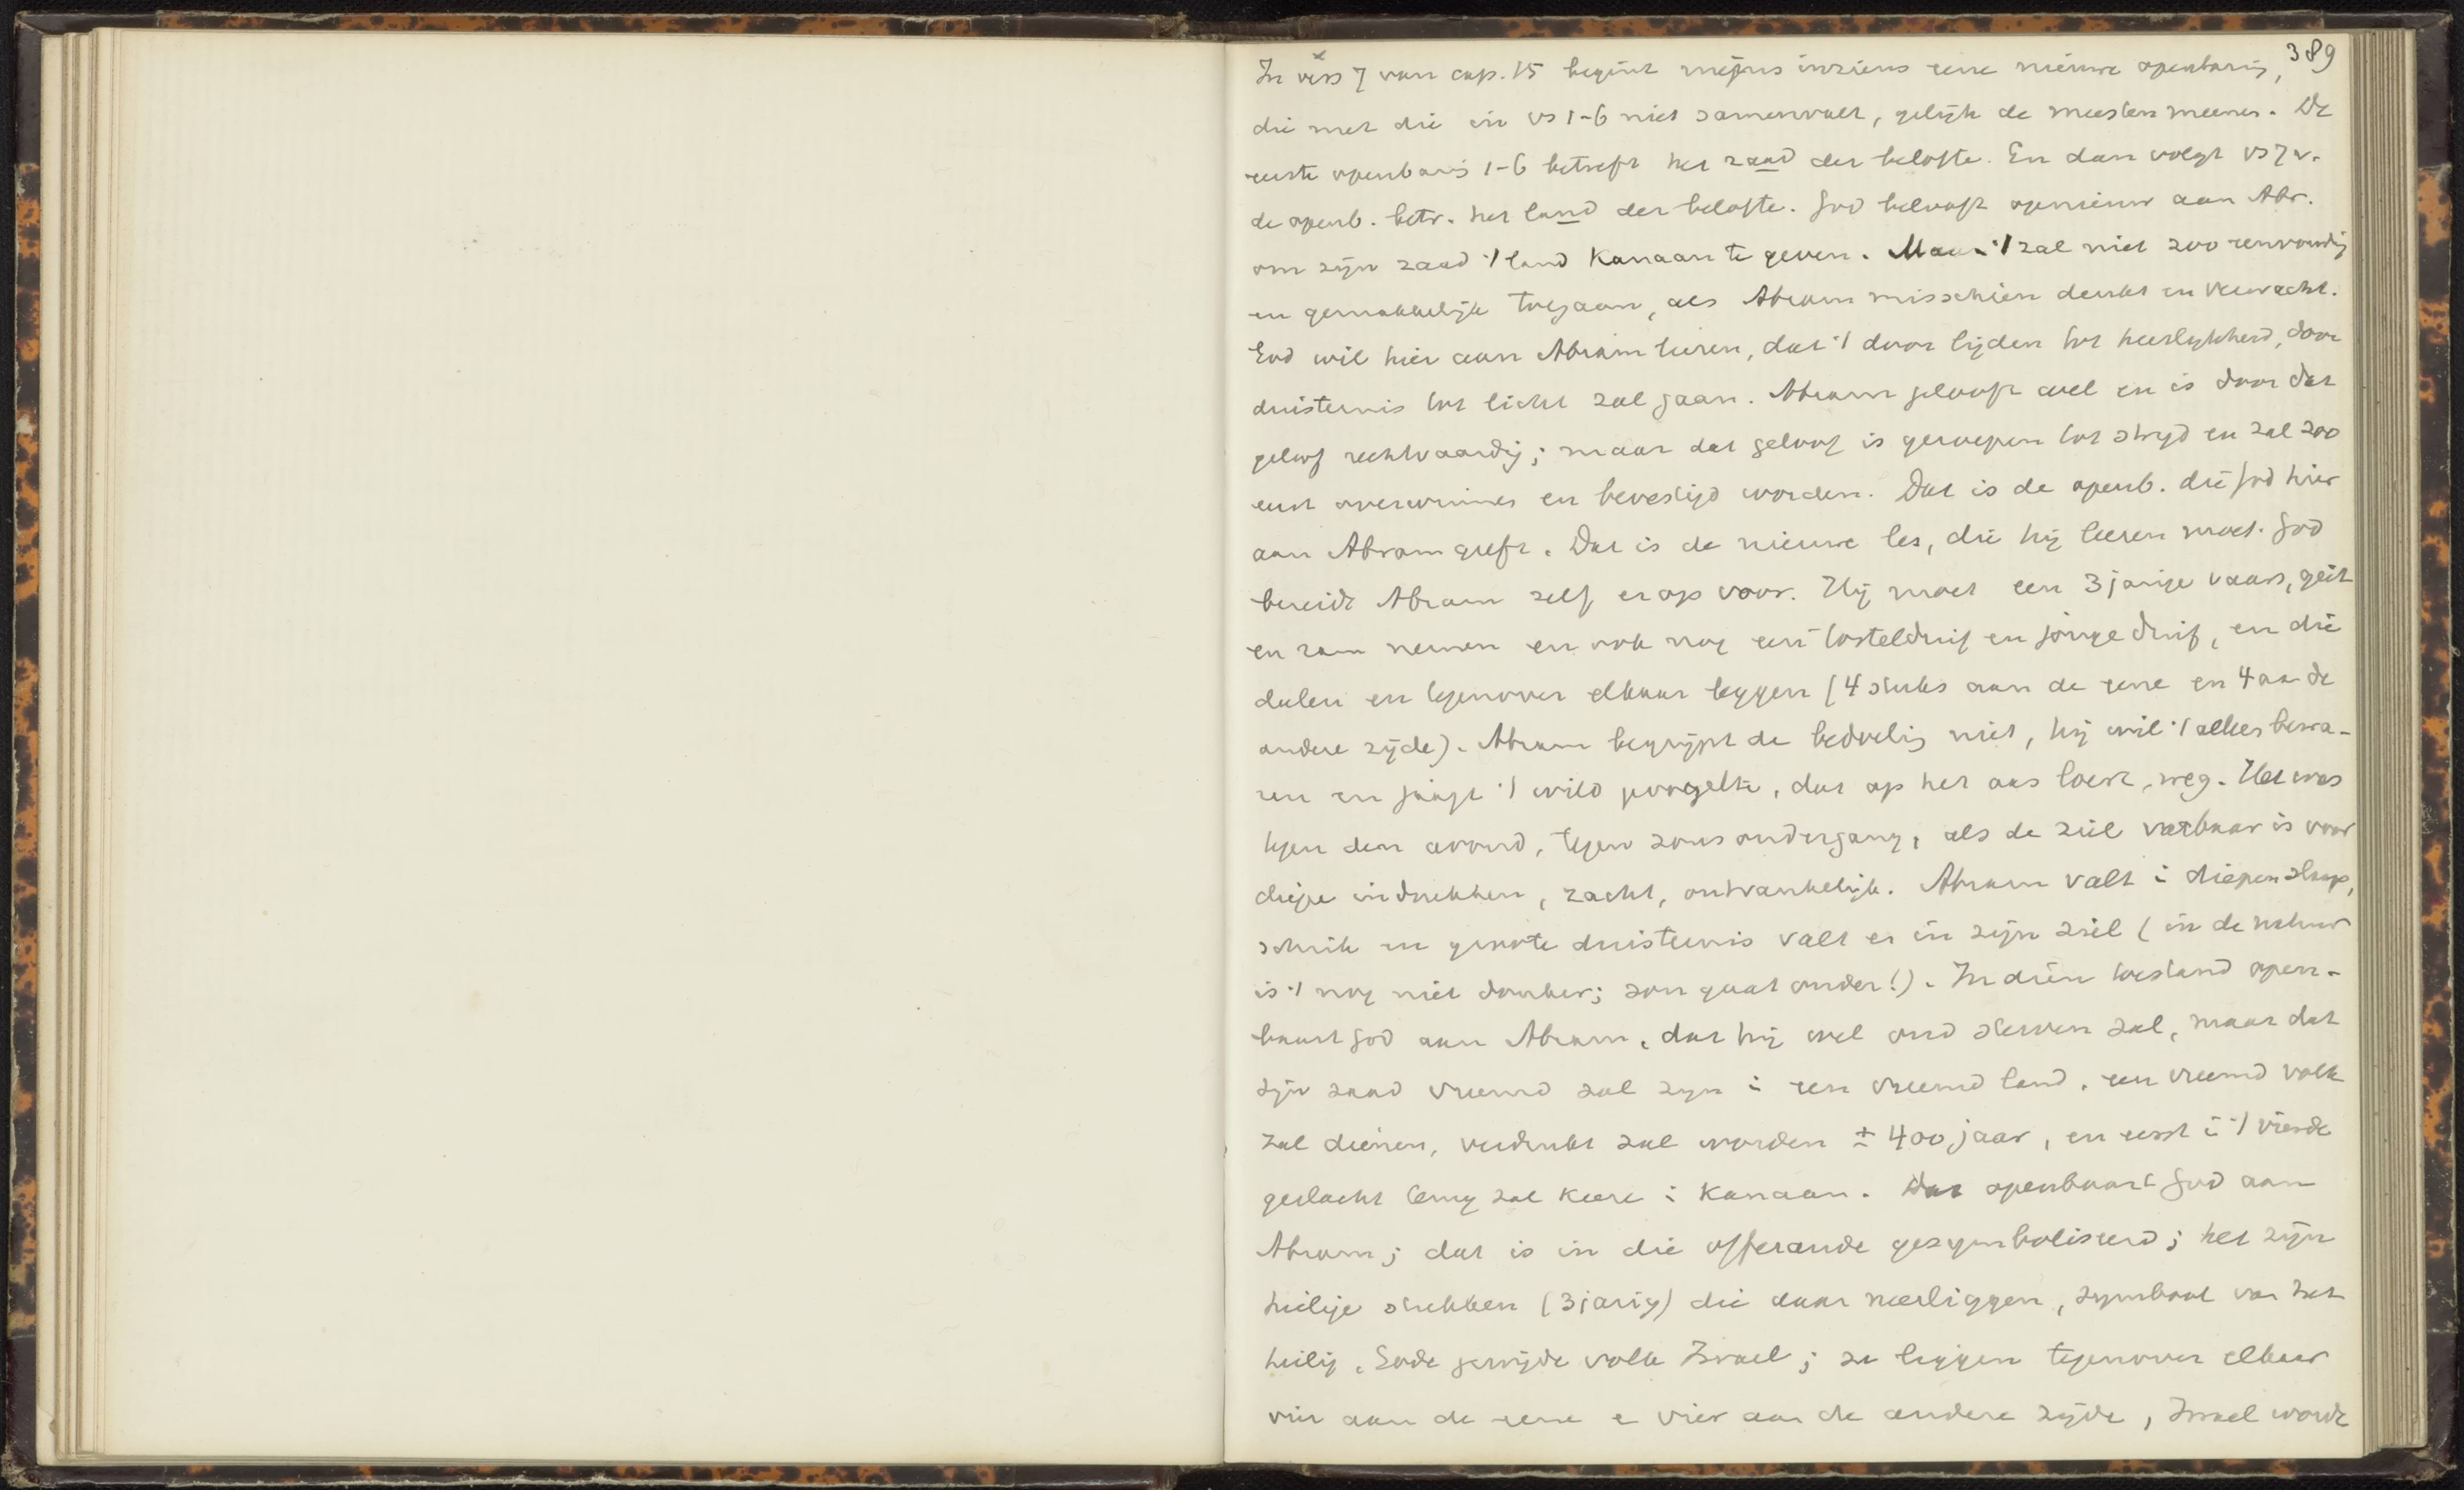 389
In vers 7 van cap. 15 begint mijns inziens eene nieuwe openbaring,
die met die in vs 1-6 niet samenvalt, gelijk de meesten meenen. De
eerste openbaring 1-6 betreft het zaad der belofte. En dan volgt vs 7 v.
de openb. betr. het land der belofte. God belooft opnieuw aan Abr.
om zijn zaad 't land Kanaan te geven. Maar 't zal niet zoo eenvoudig
en gemakkelijk toegaan, als Abram misschien denkt en verwacht.
God wil hier aan Abram leeren, dat 't door lijden tot heerlijkheid, door
duisternis tot licht zal gaan. Abram gelooft wel en is door dat
geloof rechtvaardig; maar dat geloof is geroepen tot strijd en zal zoo
eerst overwinnen en bevestigd worden. Dat is de openb. die God hier
aan Abram geeft. Dat is de nieuwe les, die hij leeren moet. God
bereidt Abram zelf erop voor. Hij moet een 3 jarige vaars, geit
en ram nemen en ook nog een tortelduif en jonge duif, en die
deelen en tegenover elkaar leggen (4 stuks aan de eene en 4 aan de
andere zijde). Abram begrijpt de bedoeling niet, hij wil 't alles bewa-
ren en jaagt 't wild gevogelte, dat op het aas loert, weg. Het was
tegen den avond, tegen zonsondergang, als de ziel vatbaar is voor
diepe indrukken, zacht, ontvankelijk. Abram valt i diepen slaap,
schrik en groote duisternis valt er in zijn ziel (in de natuur
is 't nog niet donker; zon gaat onder!). In dien toestand open-
baart God aan Abram, dat hij wel oud sterven zal, maar dat
zijn zaad vreemd zal zijn i een vreemd land, een vreemd volk
zal dienen, verdrukt zal worden ± 400 jaar, en eerst i 't vierde
geslacht terug zal keere i Kanaan. Dat openbaart God aan
Abram; dat is in die offerande gesymboliseerd; het zijn
heilige stukken (3jarig) die daar neerliggen, symbool van het
heilig, Gode gewijde volk Israel; ze liggen tegenover elkaar
vier aan de eene e vier aan de andere zijde, Israel wordt